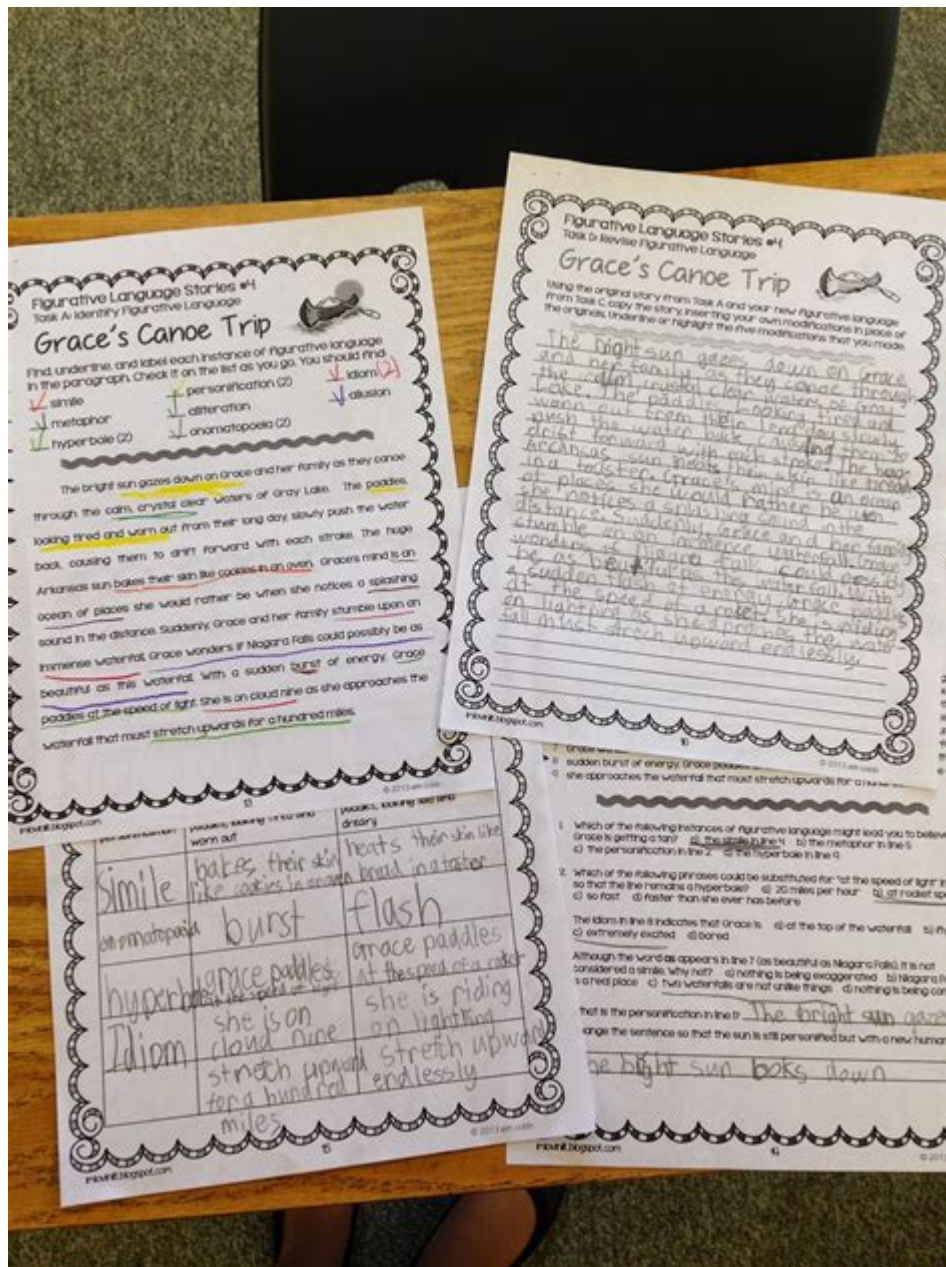 Figurative Language Stories #4
Task A: Identify Figurative Language
Grace's Canoe Trip
Find, underline, and label each instance of figurative language
in the paragraph. Check it on the list as you go. You should find:
simile
personification (2)
idiom (2)
metaphor
alliteration
allusion
hyperbole (2)
onomatopoeia (2)
The bright sun gazes down on Grace and her family as they canoe
through the calm, crystal clear waters of Gray Lake. The paddles,
looking tired and worn out from their long day, slowly push the water
back, causing them to drift forward with each stroke. The huge
Arkansas sun bakes their skin like cookies in an oven. Grace's mind is an
ocean of places she would rather be when she notices a splashing
sound in the distance. Suddenly, Grace and her family stumble upon an
immense waterfall. Grace wonders if Niagara Falls could possibly be as
beautiful as this waterfall. With a sudden burst of energy, Grace
paddles at the speed of light. She is on cloud nine as she approaches the
waterfall that must stretch upwards for a hundred miles.
13
© 2013 erin cobb
imlovinlit.blogspot.com
Figurative Language Stories #4
Task D: Revise Figurative Language
Grace's Canoe Trip
Using the original story from Task A and your new figurative language
from Task C, copy the story, inserting your own modifications in place of
the originals. Underline or highlight the five modifications that you made.
The bright sun gazes down on Grace
and her family as they canoe through
the calm crystal clear waters of Gray
Lake. The paddles looking tired and
worn out from their long day slowly
push the water back causing them to
drift forward with each stroke. The huge
Arcansas sun heats their skin like bread
in a toaster. Grace's mind is an ocean
of places she would rather be
She notices a splashing sound in the
distance. Suddenly Grace and her family
stumble on an immence waterfall. Grace
wonders if Niagra falls could possibly
be as beautiful as the waterfall. With
a sudden flash of energy Grace paddles
at the speed of a rocket. She is riding
on lightning as she approaches the water
fall must strech upward endlessly.
imlovinlit.blogspot.com
16
© 2013 erin cobb
worn out
dreary
Simile
bakes their skin
like cookies in an oven
heats their skin like
bread in a toster
burst
flash
grace paddles
Grace paddles
at the speed of a rocket
Idiom
she is on
cloud nine
she is riding
on lightning
stretch upward
for a hundred
miles
stretch upward
endlessly
15
© 2013 erin cobb
imlovinlit.blogspot.com
8 sudden burst of energy, Grace paddles
9 she approaches the waterfall that must stretch upwards for a
1. Which of the following instances of figurative language might lead you to believe
Grace is getting a tan? a) the simile in line 4 b) the metaphor in line 5
c) the personification in line 2 d) the hyperbole in line 9
2. Which of the following phrases could be substituted for "at the speed of light" in
so that the line remains a hyperbole? a) 20 miles per hour b) at rocket
c) so fast d) faster than she ever has before
The idiom in line 8 indicates that Grace is a) at the top of the waterfall b)
c) extremely excited d) bored
Although the word as appears in line 7 (as beautiful as Niagara Falls), it is not
considered a simile. Why not? a) nothing is being exaggerated b) Niagara
is a real place c) two waterfalls are not unlike things d) nothing is being
hat is the personification in line 1? The bright sun gaze
ange the sentence so that the sun is still personified but with a new human
he bright sun looks down
imlovinlit.blogspot.com
14
© 2013